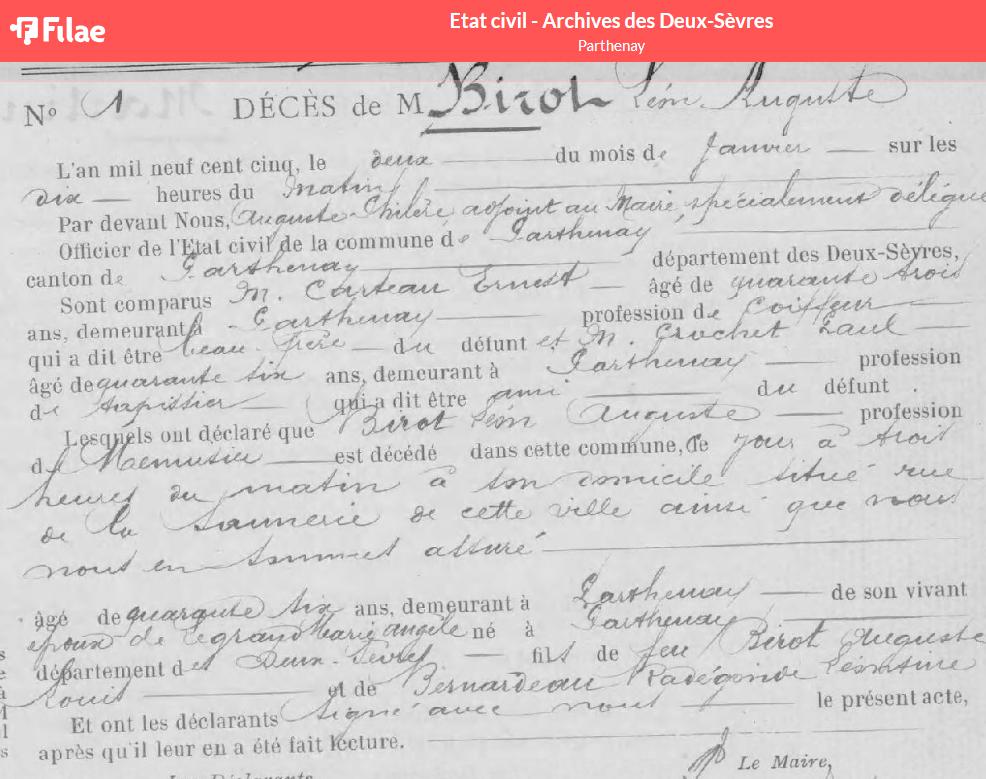 Filae
Etat civil - Archives des Deux-Sèvres
Parthenay
No 1 DÉCÈS de M Birot Léon Auguste
L'an mil neuf cent cinq, le deux du mois de Janvier sur les
dix heures du matin
Par devant Nous, Auguste adjoint au Maire, spécialement délégué
Officier de l'Etat civil de la commune de Parthenay
canton de Parthenay département des Deux-Sèvres,
Sont comparus M. Carteau Ernest âgé de quarante trois
ans, demeurant à Parthenay profession de Coiffeur
qui a dit être beau-frère du défunt et M. Crochet Paul
âgé de quarante six ans, demeurant à Parthenay profession
de tapissier qui a dit être ami du défunt .
Lesquels ont déclaré que Birot Léon Auguste profession
de Menuisier est décédé dans cette commune, ce jour à trois
heures du matin à son domicile situé rue
de la Saunerie de cette ville ainsi que nous
nous en sommes assuré
âgé de quarante six ans, demeurant à Parthenay de son vivant
époux de Legrand Marie Angèle né à Parthenay
département des Deux-Sèvres fils de feu Birot Auguste
Louis et de Bernardeau Radégonde Léontine
Et ont les déclarants signé avec nous le présent acte,
après qu'il leur en a été fait lecture.
Le Maire,